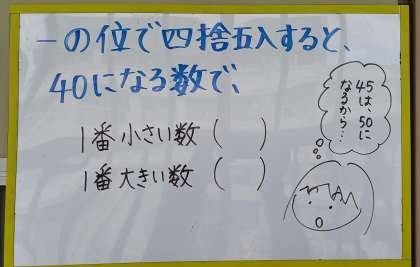 一の位で四捨五入すると、
40になる数で、
1番小さい数(　)
1番大きい数(　)
45は、50に
なるから…